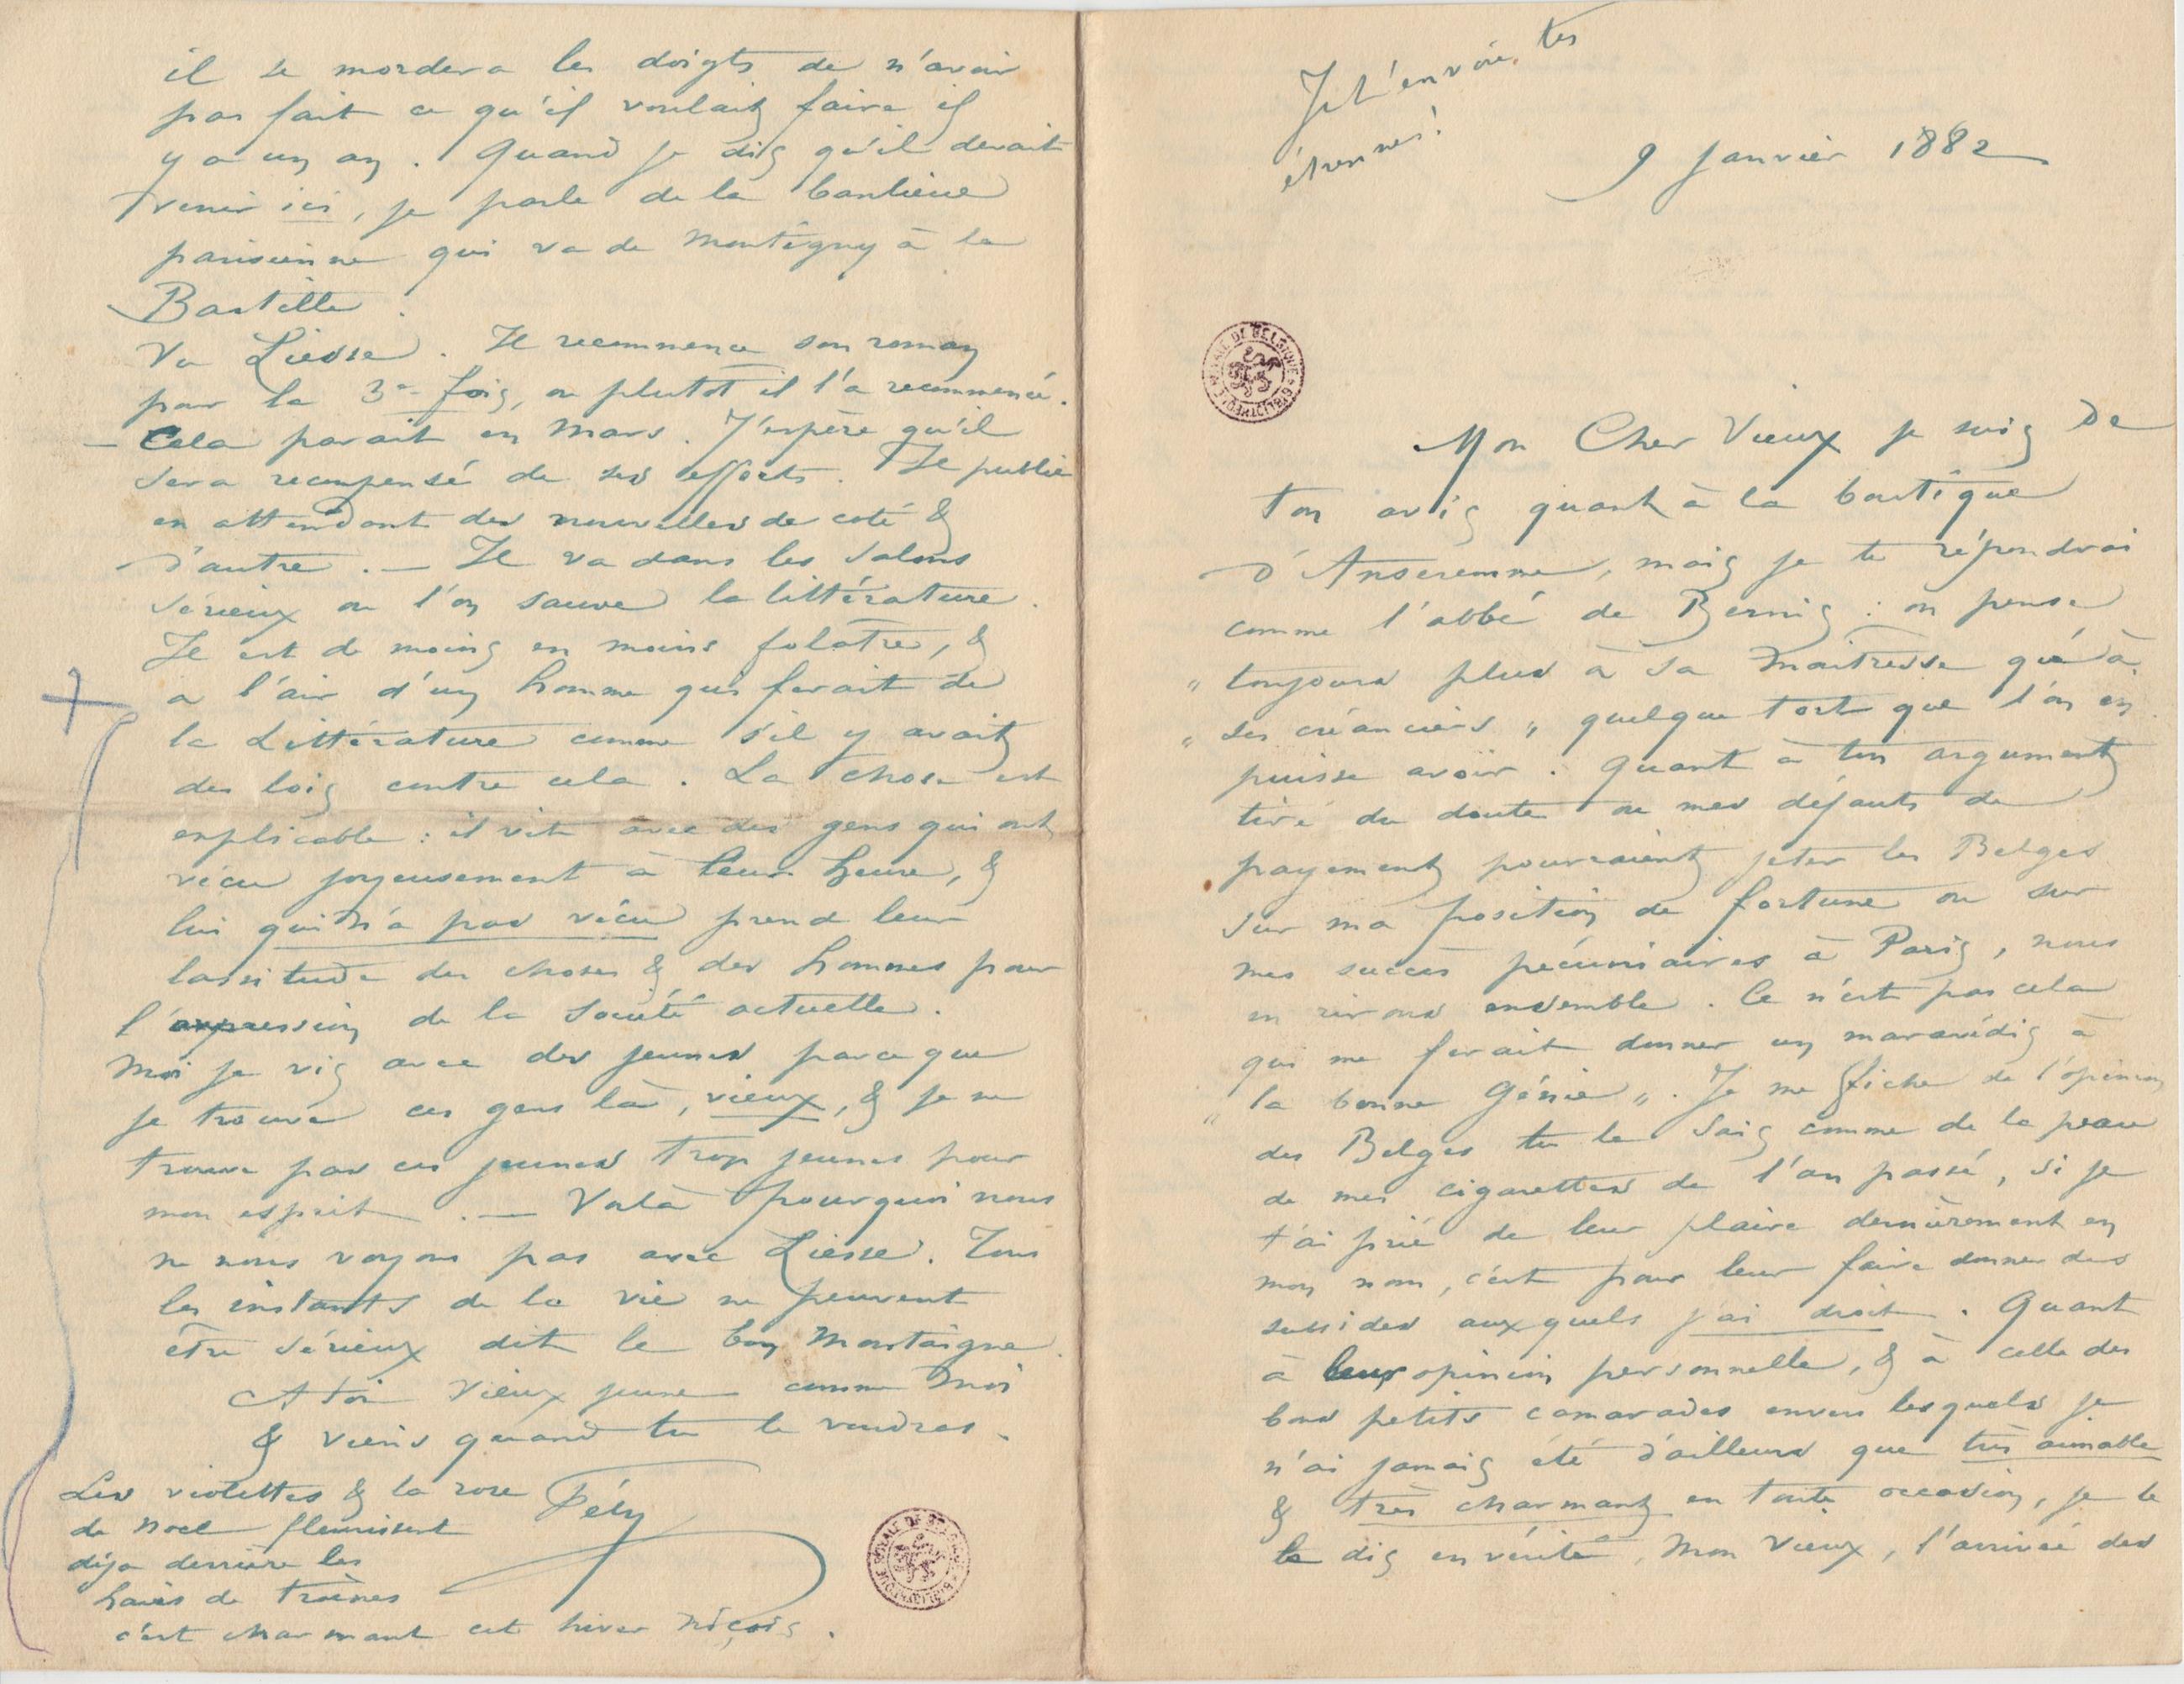 Je t'envoie tes
étrennes!
9 Janvier 1882
Mon Cher Vieux je suis de
ton avis quant à la boutique
d'Anseremme, mais je te répondrai
comme l'abbé de Bernis : on pense
" toujours plus à sa maitresse qu'à
" ses créanciers " quelque tort que l'on en
puisse avoir. Quant à ton argument
tiré du doute ou mes défauts de
payement pourraient jeter les Belges
sur ma position de fortune ou sur
mes succès pécuniaires à Paris, nous
en rirons ensemble. Ce n'est pas cela
qui me ferait donner un maravédis à
" la bonne Génie ". Je me fiche de l'opinion
des Belges tu le sais comme de la peau
de mes cigarettes de l'an passé, si je
t'ai prié de leur plaire dernièrement en
mon nom, c'est pour leur faire donner des
subsides auxquels j'ai droit. Quant
à leur opinion personnelle, & à celle des
bons petits camarades envers lesquels je
n'ai jamais été d'ailleurs que très aimable
& très charmant en toute occasion, je te
le dis en vérité, Mon Vieux, l'arrivée des
il se mordera les doigts de n'avoir
pas fait ce qu'il voulait faire il
y a un an. Quand je dis qu'il devait
venir ici, je parle de la banlieue
parisienne qui va de Montigny à la
Bastille.
Vu Liesse. Il recommence son roman
pour la 3e fois, ou plutôt il l'a recommencé.
– Cela parait en Mars. J'espère qu'il
sera recompensé de ses efforts. Il publie
en attendant des nouvelles de coté &
d'autre. — Il va dans les salons
sérieux ou l'on sauve la littérature.
Il est de moins en moins folâtre, &
a l'air d'un homme qui ferait de
la Littérature comme s'il y avait
des lois contre cela. La chose est
explicable : il vit avec des gens qui ont
vécu joyeusement à leur heure, &
lui qui n'a pas vécu prend leur
lassitude des choses & des hommes pour
l'expression de la Société actuelle.
Moi je vis avec des jeunes parce que
je trouve ces gens là, vieux, & je ne
trouve pas ces jeunes trop jeunes pour
mon esprit. — Voilà pourquoi nous
ne nous voyons pas avec Liesse. Tous
les instants de la vie ne peuvent
être sérieux dit le bon Montaigne.
A toi Vieux jeune comme Moi
& viens quand tu le voudras.
Fély
Les violettes & la rose
de Noel fleurissent
déja derrière les
haies de troènes
c'est charmant cet hiver Niçois.